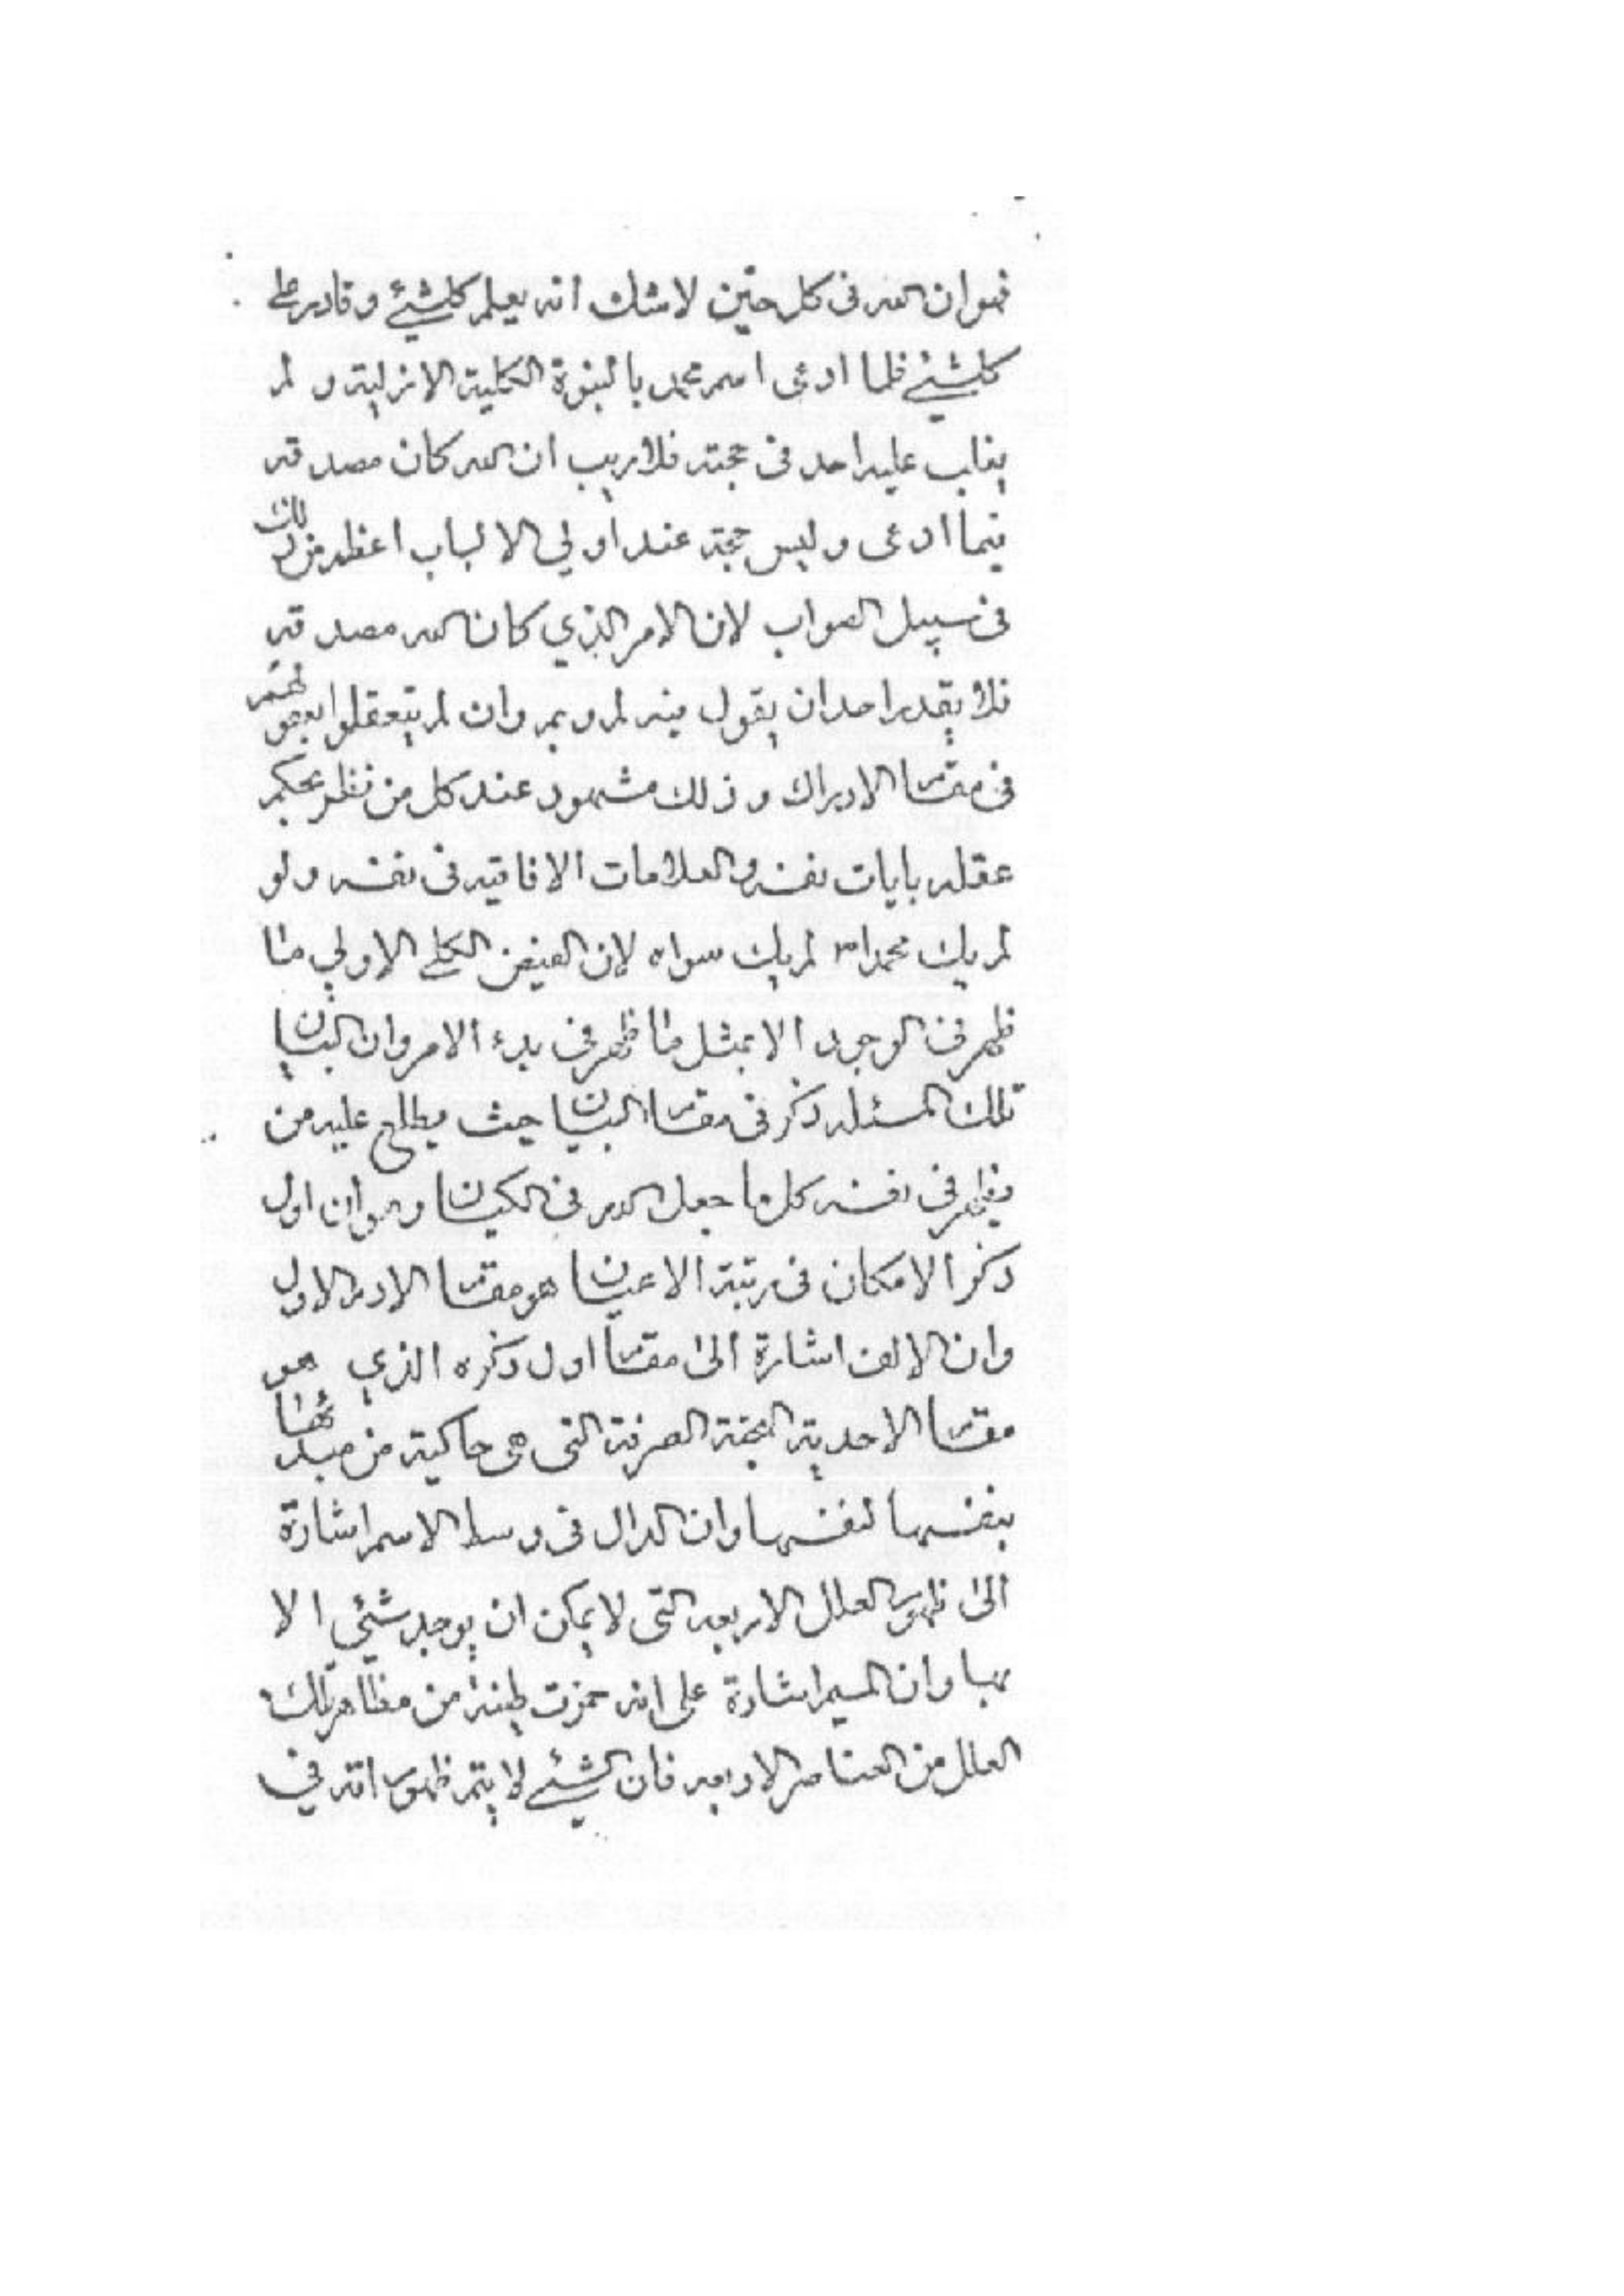 فهو ان الله فى كل حين لا شك انه يعلم كلشيء و قادر على
كلشيء فلما ادعى اسم محمد بالنبوة الكلية الازلية و لم
يغلب عليه احد فى حجته فلا ريب ان الله كان مصدقه
فيما ادعى و ليس حجة عند اولي الالباب اعظم من ذلك
فى سبيل الصواب لان الامر الذي كان الله مصدقه
فلا يقدر احد ان يقول فيه لم و بم و ان لم يتعقلوا بعقولهم
فى مقام الادراك و ذلك مشهود عند كل من نظر بحكم
عقله بايات نفسه و العلامات الافاقيه فى نفسه و لو
لم يك محمدا ص لم يك سواه لان الفيض الكلي الاولي ما
ظهر فى الوجود الا بمثل ما ظهر فى بدء الامر و ان البيان
تلك المسئله ذكر فى مقام البيان حيث يطلع عليه من
يظهر فى نفسه كل ما جعل الله فى الكيان و هو ان اول
ذكر الامكان فى رتبة الاعيان هو مقام الادم الاول
و ان الالف اشارة الى مقام اول ذكره الذي هو
مقام الاحدية البحتة الصرفة التى هى حاكية من مبدئها
بنفسها لنفسها و ان الدال فى وسط الاسم اشارة
الى ظهور العلل الاربعه التى لا يمكن ان يوجد شيء الا
بها و ان الميم اشارة على انه خمرت طينته من مظاهر تلك
العلل من العناصر الاربعه فان الشيء لا يتم ظهوراته في